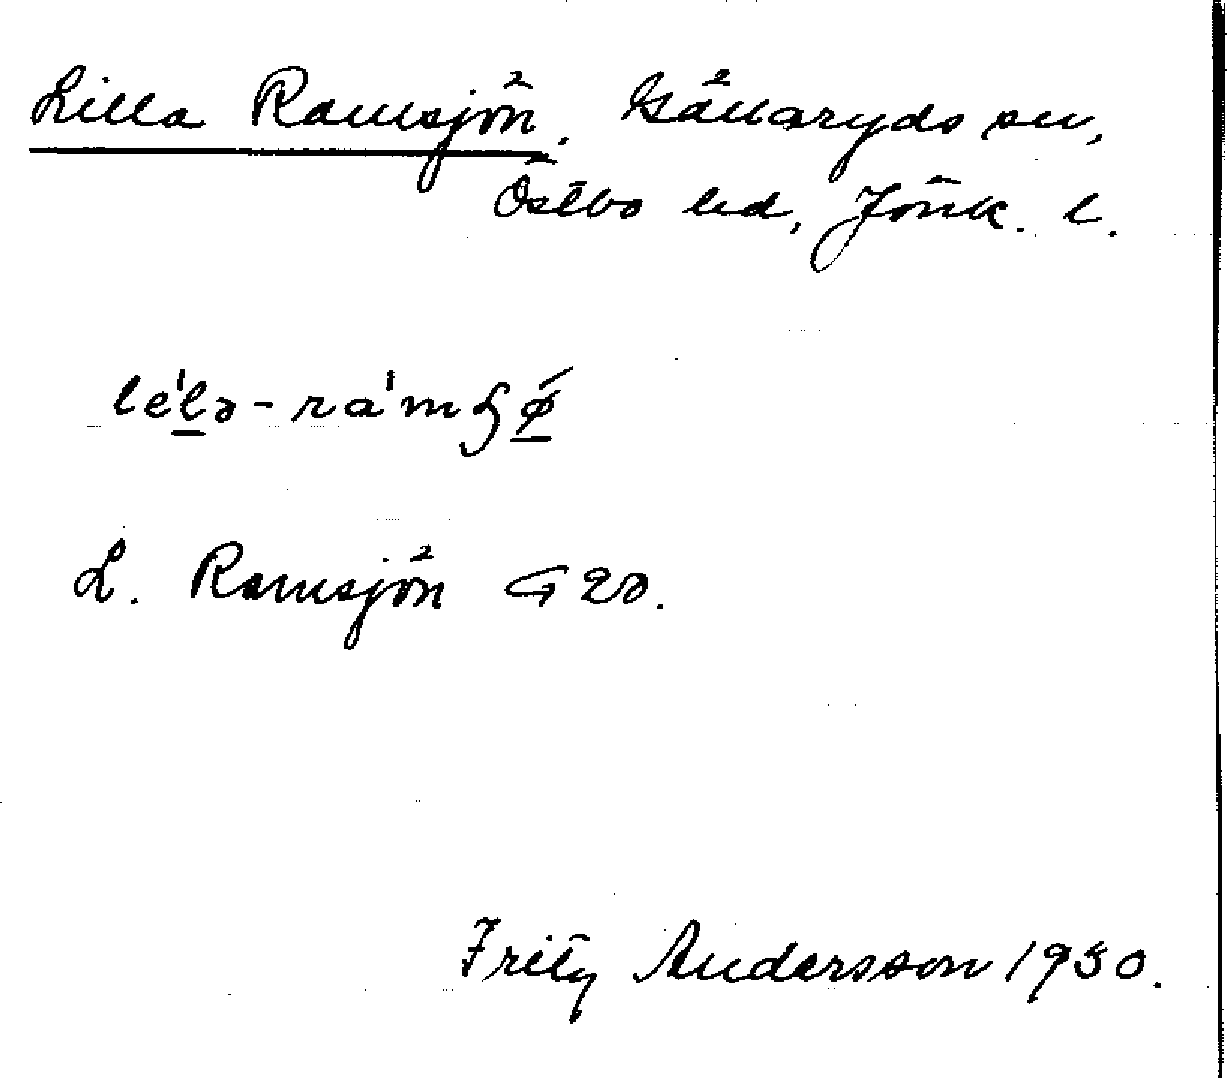 Lilla Ramsjön. Gällaryds sn,
Östbo hd, Jönk. l.
le'lə - ra'mʂø̸
L. Ramsjön G 20.
Fritz Andersson 1930.